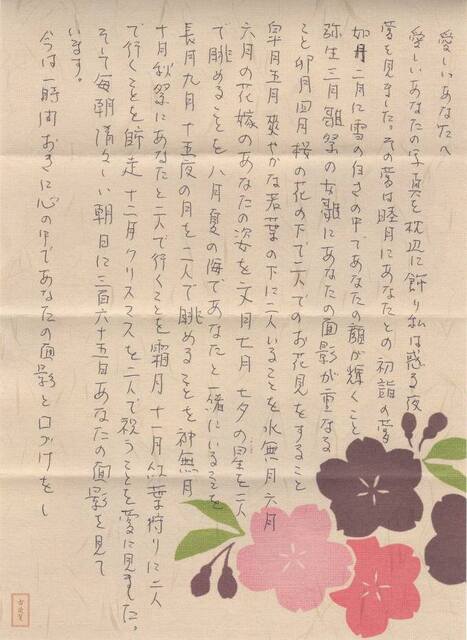 愛しいあなたへ
愛しいあなたの写真を枕辺に飾り私は惑る夜
夢を見ました。その夢は睦月にあなたとの初詣の夢
如月二月に雪の白さの中であなたの顔が輝くこと
弥生三月雛祭の女雛にあなたの面影が重なる
こと卯月四月桜の花の下で二人でのお花見をすること
皐月五月爽やかな若葉の下に二人いることを水無月六月
六月の花嫁のあなたの姿を文月七月七夕の星を二人
で眺めることを八月夏の海であなたと一緒にいることを
長月九月十五夜の月を二人で眺めることを神無月
十月秋祭にあなたと二人で行くことを霜月十一月紅葉狩りに二人
で行くことを師走十二月クリスマスを二人で祝うことを夢に見ました。
そして毎朝清々しい朝日に三百六十五日あなたの面影を見て
います。
今は一時間おきに心の中であなたの面影と口づけをし